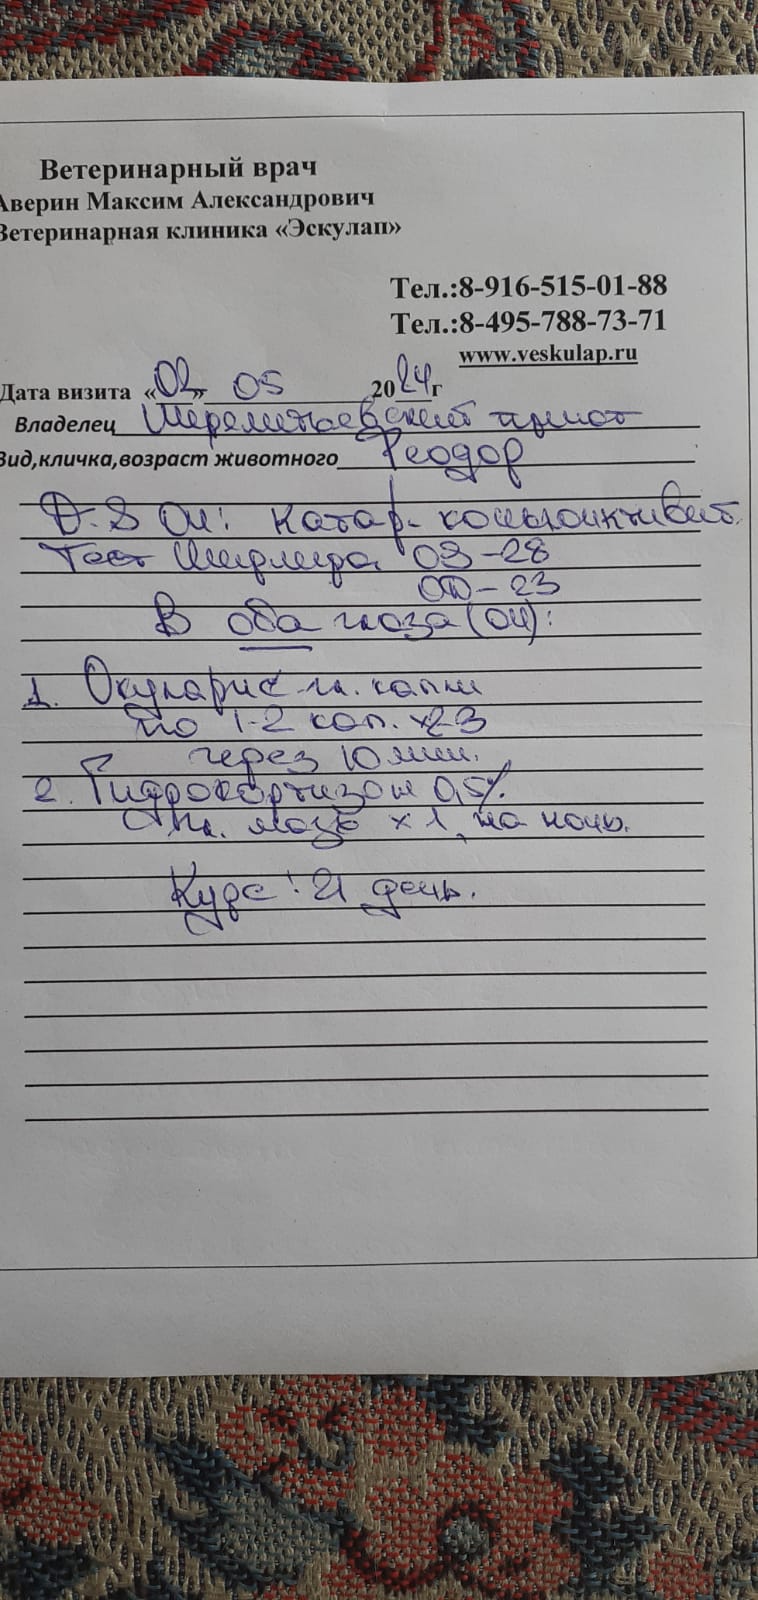 Ветеринарный врач
Аверин Максим Александрович
Ветеринарная клиника «Эскулап»
Тел.:8-916-515-01-88
Тел.:8-495-788-73-71
www.veskulap.ru
Дата визита «02» 05 2024г
Владелец Шереметьевский приют
Вид,кличка,возраст животного Теодор
D.S OU: Катар. конъюнктивит.
Тест Ширмера OS-28
OD-23
В оба глаза (OU):
1. Окуларис гл. капли
по 1-2 кап. x2-3
через 10 мин.
2. Гидрокортизон 0,5%
гл. мазь x 1, на ночь.
Курс: 21 день.